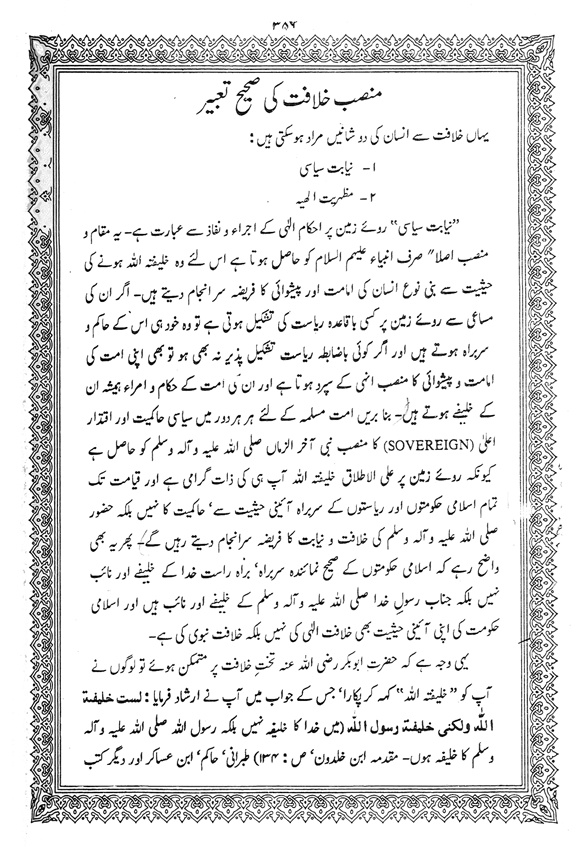 ۳۵۶
منصب خلافت کی صحیح تعبیر
یہاں خلافت سے انسان کی دو شانیں مراد ہو سکتی ہیں :
۱- نیابت سیاسی
۲- مظہریت الہیہ
”نیابت سیاسی“ روئے زمین پر احکام الٰہی کے اجراء و نفاذ سے عبارت ہے۔ یہ مقام و
منصب اصلا" صرف انبیاء علیہم السلام کو حاصل ہوتا ہے اس لئے وہ خلیفتہ اللہ ہونے کی
حیثیت سے بنی نوع انسان کی امامت اور پیشوائی کا فریضہ سرانجام دیتے ہیں۔ اگر ان کی
مساعی سے روئے زمین پر کسی باقاعدہ ریاست کی تشکیل ہوتی ہے تو وہ خود ہی اس کے حاکم و
سربراہ ہوتے ہیں اور اگر کوئی باضابطہ ریاست تشکیل پذیر نہ بھی ہو تو بھی اپنی امت کی
امامت و پیشوائی کا منصب انہی کے سپرد ہوتا ہے اور ان کی امت کے حکام و امراء ہمیشہ ان
کے خلیفے ہوتے ہیں۔ بنا بریں امت مسلمہ کے لئے ہر ہر دور میں سیاسی حاکمیت اور اقتدار
اعلیٰ (SOVEREIGN) کا منصب نبی آخر الزماں صلی اللہ علیہ و آلہ وسلم کو حاصل ہے
کیونکہ روئے زمین پر علی الاطلاق خلیفتہ اللہ آپ ہی کی ذات گرامی ہے اور قیامت تک
تمام اسلامی حکومتوں اور ریاستوں کے سربراہ آئینی حیثیت سے‘ حاکمیت کا نہیں بلکہ حضور
صلی اللہ علیہ و آلہ وسلم کی خلافت و نیابت کا فریضہ سرانجام دیتے رہیں گے۔ پھر یہ بھی
واضح رہے کہ اسلامی حکومتوں کے صحیح نمائندہ سربراہ‘ براہ راست خدا کے خلیفے اور نائب
نہیں بلکہ جناب رسول خدا صلی اللہ علیہ و آلہ وسلم کے خلیفے اور نائب ہیں اور اسلامی
حکومت کی اپنی آئینی حیثیت بھی خلافت الٰہی کی نہیں بلکہ خلافت نبوی کی ہے۔
یہی وجہ ہے کہ حضرت ابوبکر رضی اللہ عنہ تخت خلافت پر متمکن ہوئے تو لوگوں نے
آپ کو ”خلیفتہ اللہ“ کہہ کر پکارا‘ جس کے جواب میں آپ نے ارشاد فرمایا : لست خلیفة
اللّٰه ولکنی خلیفة رسول اللّٰه (میں خدا کا خلیفہ نہیں بلکہ رسول اللہ صلی اللہ علیہ و آلہ
وسلم کا خلیفہ ہوں۔ مقدمہ ابن خلدون‘ ص : ۱۳۴) طبرانی‘ حاکم‘ ابن عساکر اور دیگر کتب